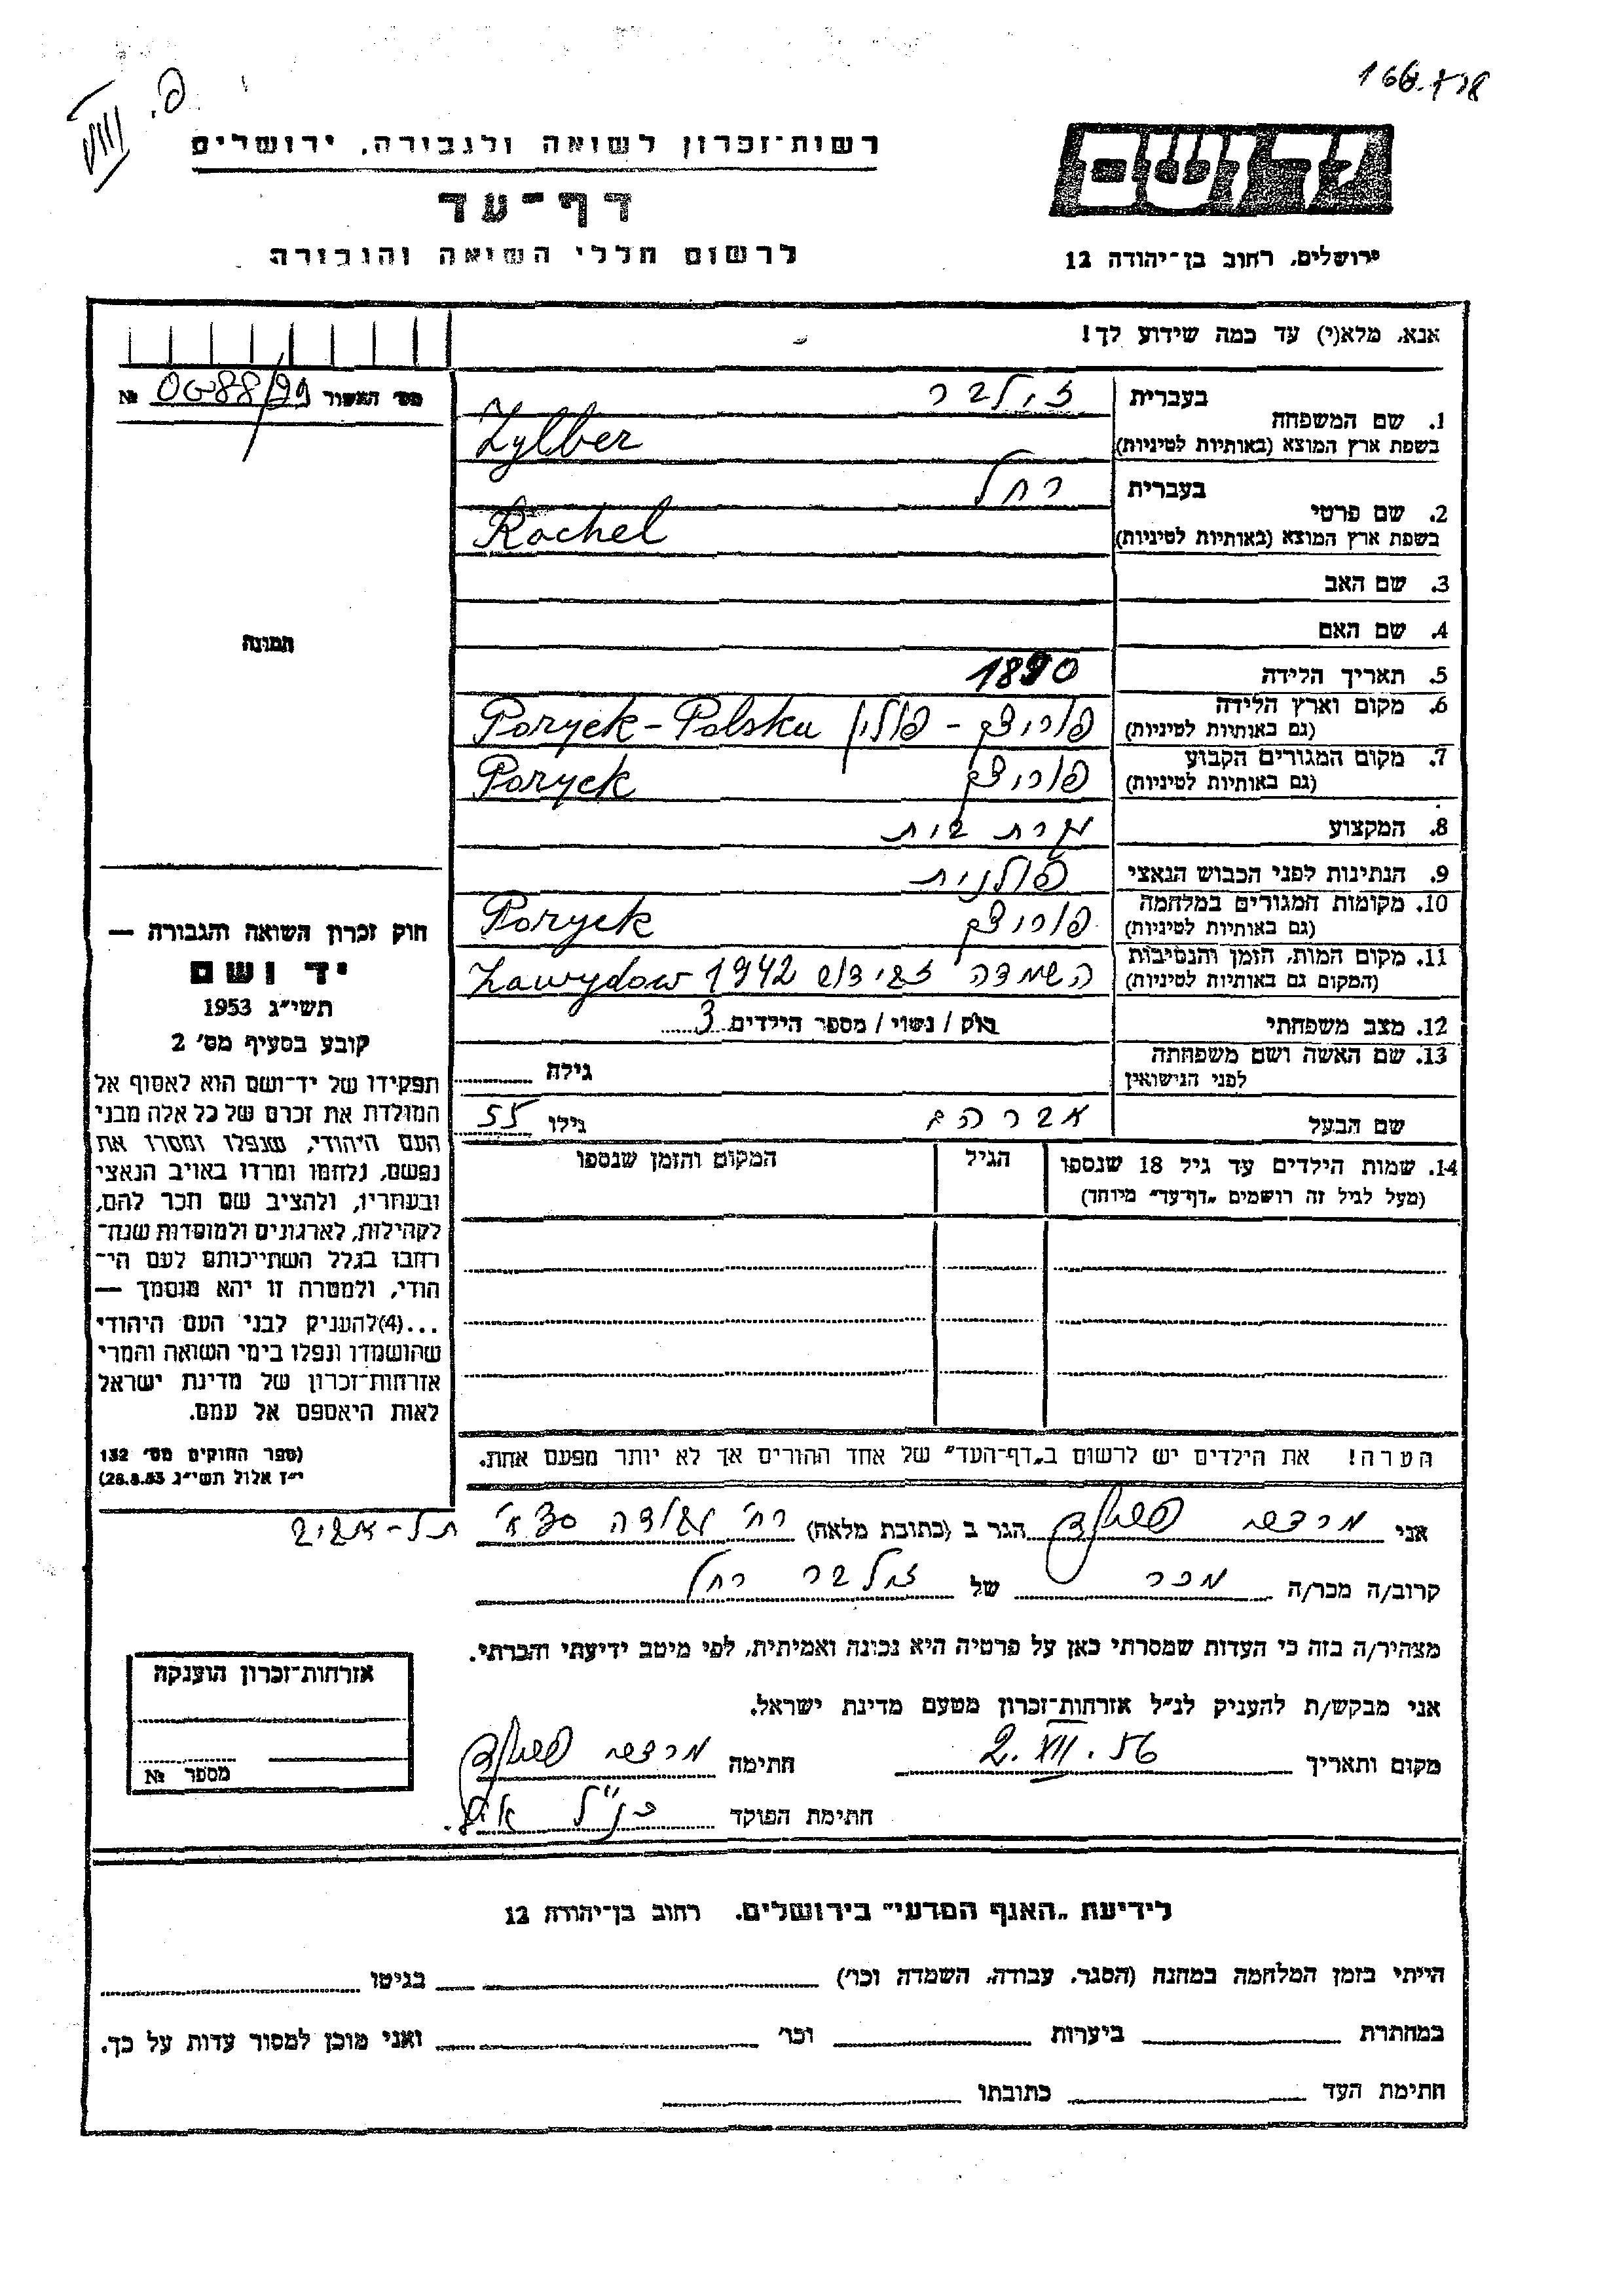 רשות־זכרון לשואה ולגבורה, ירושלים
דף־עד
לרשום חללי השואה והגבורה
יד ושם
ירושלים, רחוב בן־יהודה 12
אנא, מלא(י) עד כמה שידוע לך!
מס׳ האשור №
התמונה
חוק זכרון השואה והגבורה —
יד ושם
תשי״ג 1953
קובע בסעיף מס׳ 2
תפקידו של יד־ושם הוא לאסוף אל
המולדת את זכרם של כל אלה מבני
העם היהודי, שנפלו ומסרו את
נפשם, נלחמו ומרדו באויב הנאצי
ובעוזריו, ולהציב שם וזכר להם,
לקהילות, לארגונים ולמוסדות שנח־
רחבו בגלל השתייכותם לעם הי־
הודי, ולמטרה זו יהא מוסמך —
...(4)להעניק לבני העם היהודי
שהושמדו ונפלו בימי השואה והמרי
אזרחות־זכרון של מדינת ישראל
לאות היאספם אל עמם.
(ספר החוקים מס׳ 132
י״ז אלול תשי״ג 28.8.53)
בעברית זילבר
1. שם המשפחה
בשפת ארץ המוצא (באותיות לטיניות) Zylber
בעברית רחל
2. שם פרטי
בשפת ארץ המוצא (באותיות לטיניות) Rachel
3. שם האב
4. שם האם
5. תאריך הלידה 1890
6. מקום וארץ הלידה פוריצק - פולין Poryck - Polska
(גם באותיות לטיניות)
7. מקום המגורים הקבוע פוריצק Poryck
(גם באותיות לטיניות)
8. המקצוע עקרת בית
9. הנתינות לפני הכבוש הנאצי פולנית
10. מקומות המגורים במלחמה פוריצק Poryck
(גם באותיות לטיניות)
11. מקום המות, הזמן והנסיבות השמדה זבידוב 1942 Zawydow
(המקום גם באותיות לטיניות)
12. מצב משפחתי רווק / נשוי / מספר הילדים 3
13. שם האשה ושם משפחתה גילה
לפני הנישואין
שם הבעל אברהם גילו 55
14. שמות הילדים עד גיל 18 שנספו הגיל המקום והזמן שנספו
(מעל לגיל זה רושמים „דף־עד״ מיוחד)
הערה! את הילדים יש לרשום ב„דף־העד״ של אחד ההורים אך לא יותר מפעם אחת.
אני מרדכי הגר ב (כתובת מלאה) רח׳ תל-אביב
קרוב/ה מכר/ה מכר של זילבר רחל
מצהיר/ה בזה כי העדות שמסרתי כאן על פרטיה היא נכונה ואמיתית, לפי מיטב ידיעתי והכרתי.
אני מבקש/ת להעניק לנ״ל אזרחות־זכרון מטעם מדינת ישראל.
מקום ותאריך 2.XII.56 חתימה מרדכי
חתימת הפוקד
אזרחות־זכרון הוענקה
מספר №
לידיעת „האגף המדעי״ בירושלים, רחוב בן־יהודה 12
הייתי בזמן המלחמה במחנה (הסגר, עבודה, השמדה וכו׳) בגיטו
במחתרת ביערות וכו׳ ואני מוכן למסור עדות על כך.
חתימת העד כתובתו